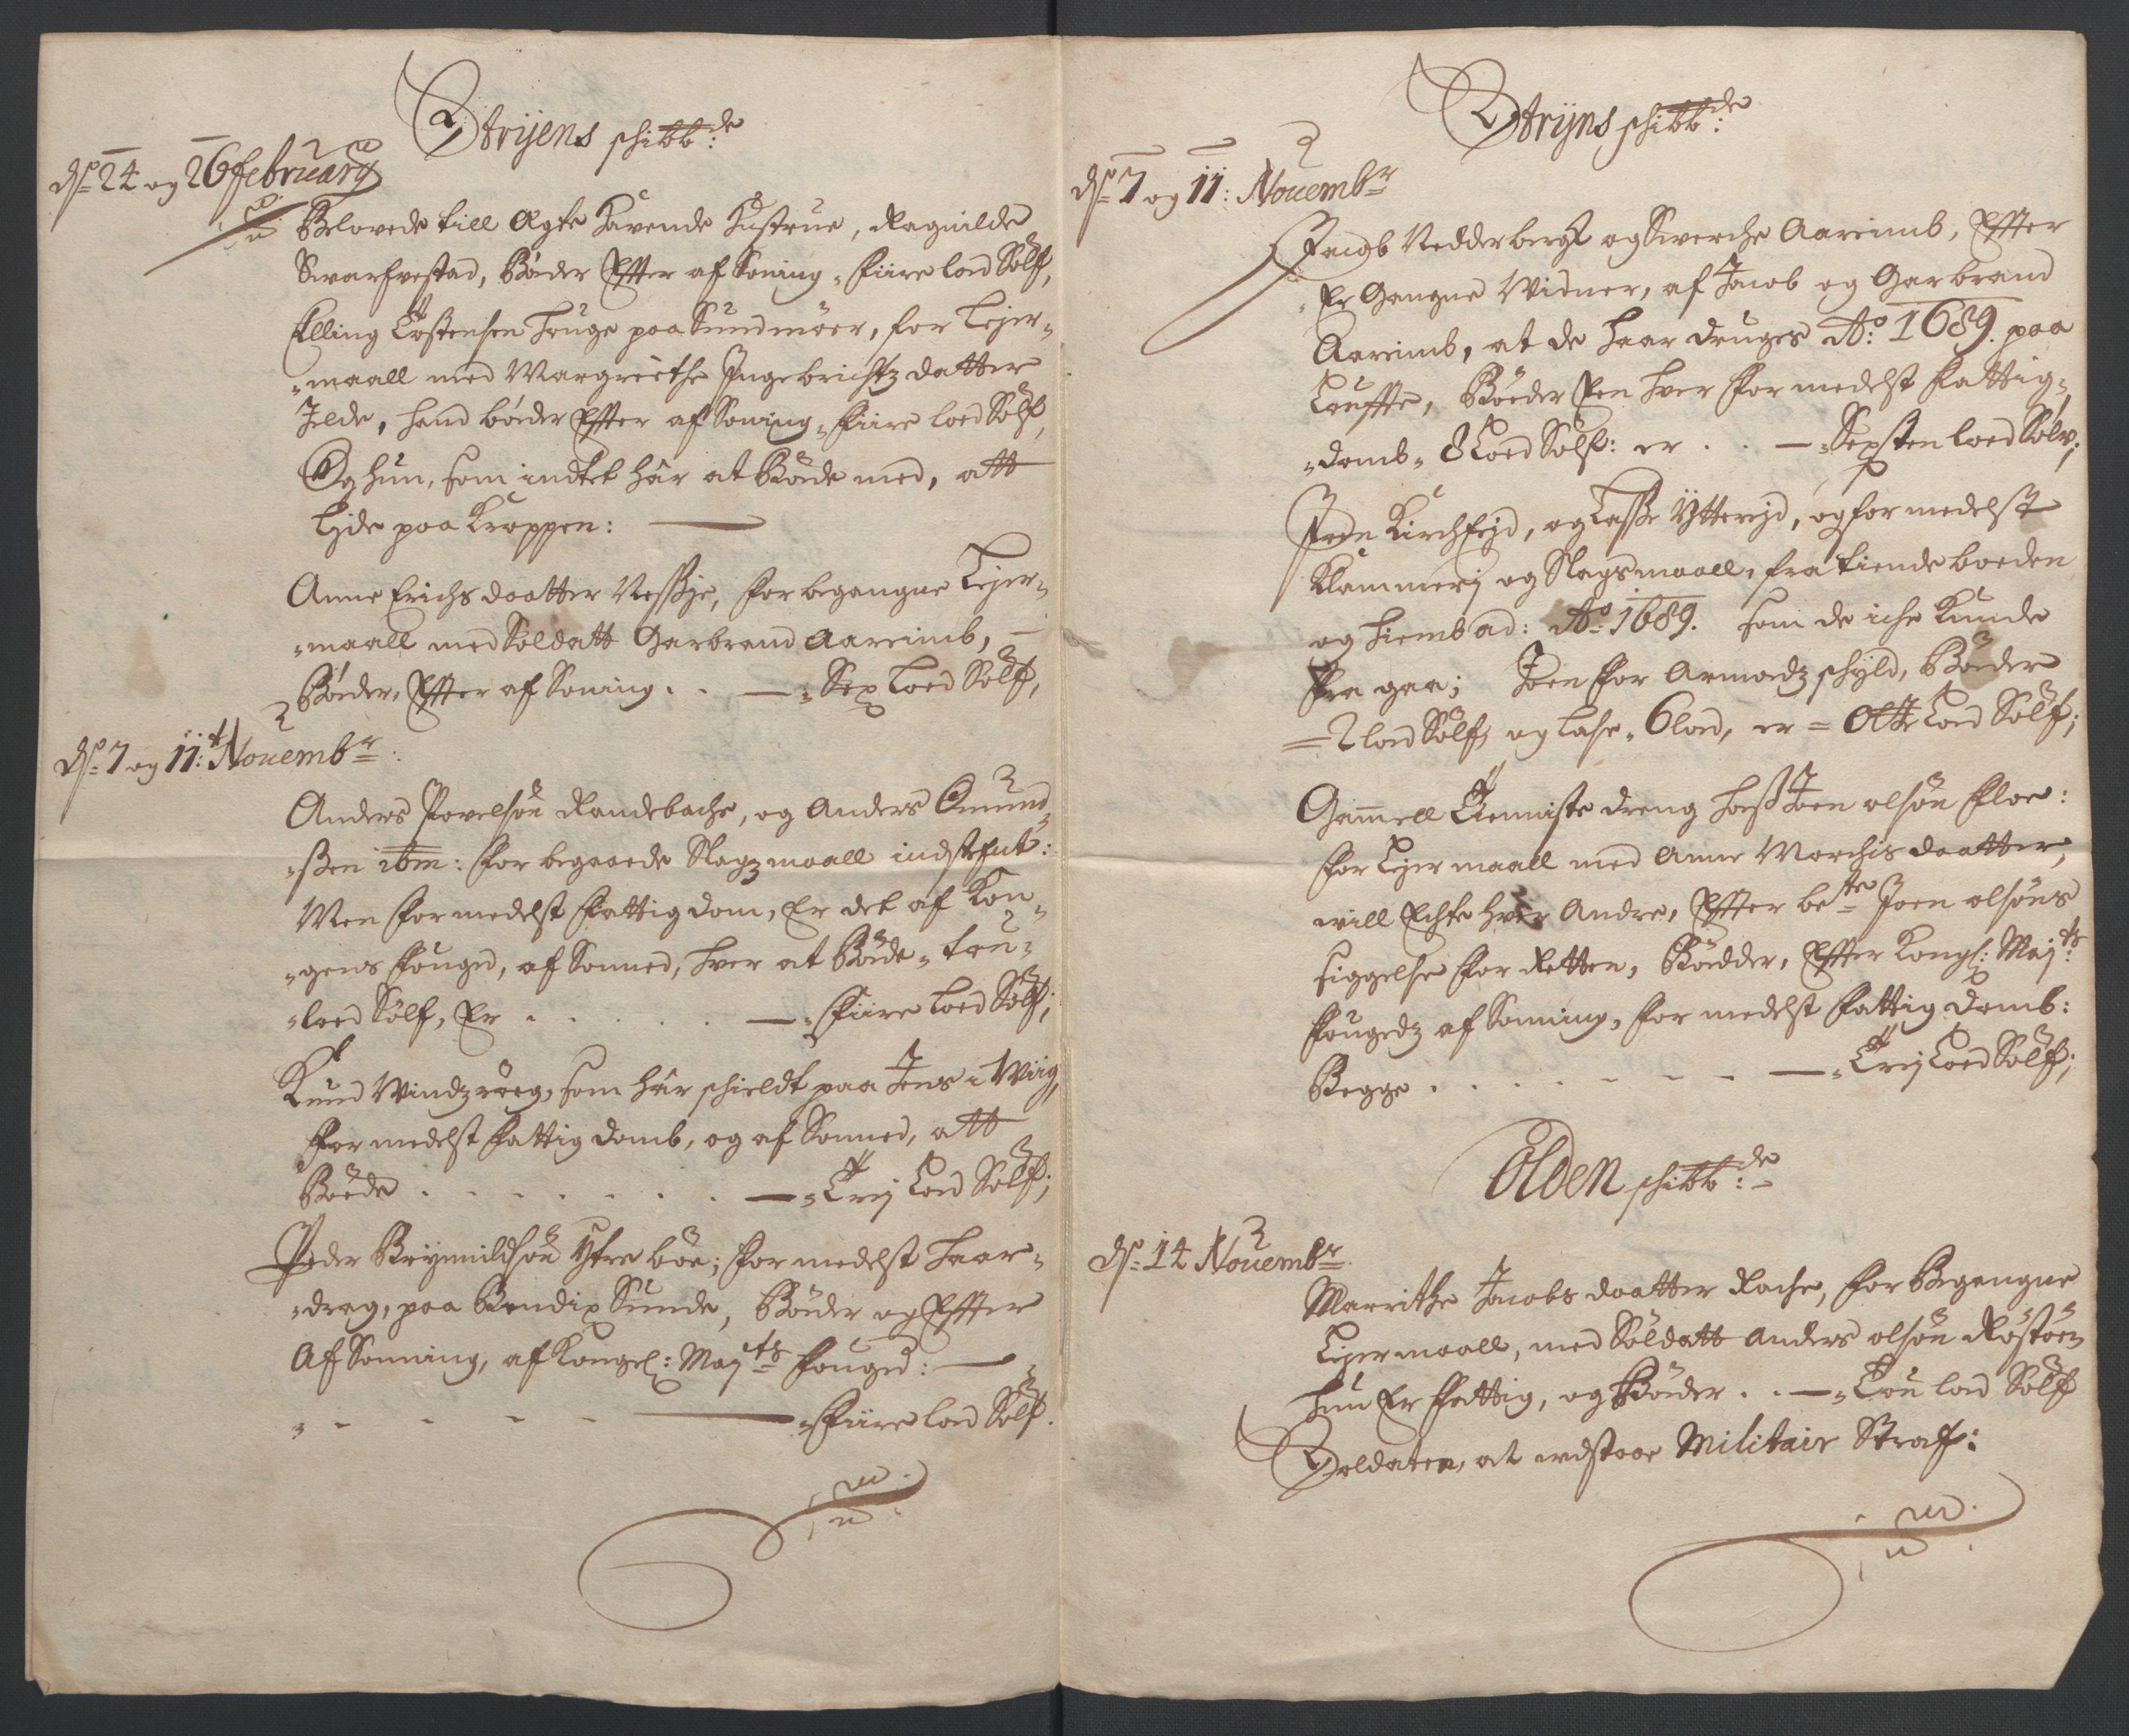 Strijens schibb:de
ds: 24 og 26 februarij
Belovede till Ægte Havende Hustrue, Ragnilde
Swarfvestad, Böder Effter afSoning, fiire lod Sölf,
Elling Tostensen Houge paa Sundmöer, for Lejer-
maall med Margriethe Ingebrichtz datter
Ielde, hand böder Effter afSoning, fiire loed Sölf,
Og hun, som indtet här at Böde med, att
Lide paa Kroppen:
Anne Erichs daatter Nesje, for begangne Lejer-
maall med Soldatt Garbrand Aareimb,
Böder, Effter afSoning . . Sex Loed Sölf,
ds: 7 og 11: Nouembr:
Anders Povelsön Randebache, og Anders Omund
ßen ibm: for begaaede Slagzmaall indstefnt:
Men formedelst fattigdom, Er det af Kon-
gens fouged, afSonned, hver at Böde, tou
loed Sölf, Er . . . . . fiire Loed Sölf,
Knud Windzröeg, som här schieldt paa Jens i Wiig,
formedelst fattigdomb, og afSonned, att
Böede . . . . . . . Trej Lod Sölf,
Peder Brÿnnildsön Ytre böe; formedelst Haar-
drag, paa Bendix Sunde, Böder og Effter
AfSonning, af Kongel: Mayts fouged:
fiire lod Sölf.
Strijns schibb:de
ds: 7 og 11: Nouembr
Jacob Nedderberg og Swerche Aareimb, Effter
Er Gangne Widner, af Jacob og Garbrand
Aareimb, at de haar druges Ao: 1689. paa
Louffte, Böeder Een hver formedelst fattig-
domb, 8 Loed Sölf: er . . Sexsten loed Sölv,
Joen Kirchejd, og Lasse Ytterejd, og formedelst
Klammerj og Slagsmaall, fra tiende boeden
og Hiembad: Ao: 1689. som de iche Kunde
fra gaa; Joen for Armodz schyld, Böder
2 lod Sölf, og Lasse, 6 lod, er = Otte Lod Sölf;
Gammell Tienniste dreng hos Joen olsön floe:
for Lejermaall med Anne Marchis daatter,
will Echte hver Andre, Effter bete Joen olsöns
siggelse for Retten, Bödder, Effter Kongl: Mayts
fougedz afSonning, formedelst fattigdomb:
Begge . . . . . . . Trej Loed Sölf;
Olden schibb:de
ds: 14 Nouembr
Marrithe Jacobs daatter Rache, for Begangne
Lejermaall, med Soldatt Anders olsön Röstöen
hun Er fattig, og Böder . . Tou lod Sölf
Soldaten, at udstaae Militair Straf: